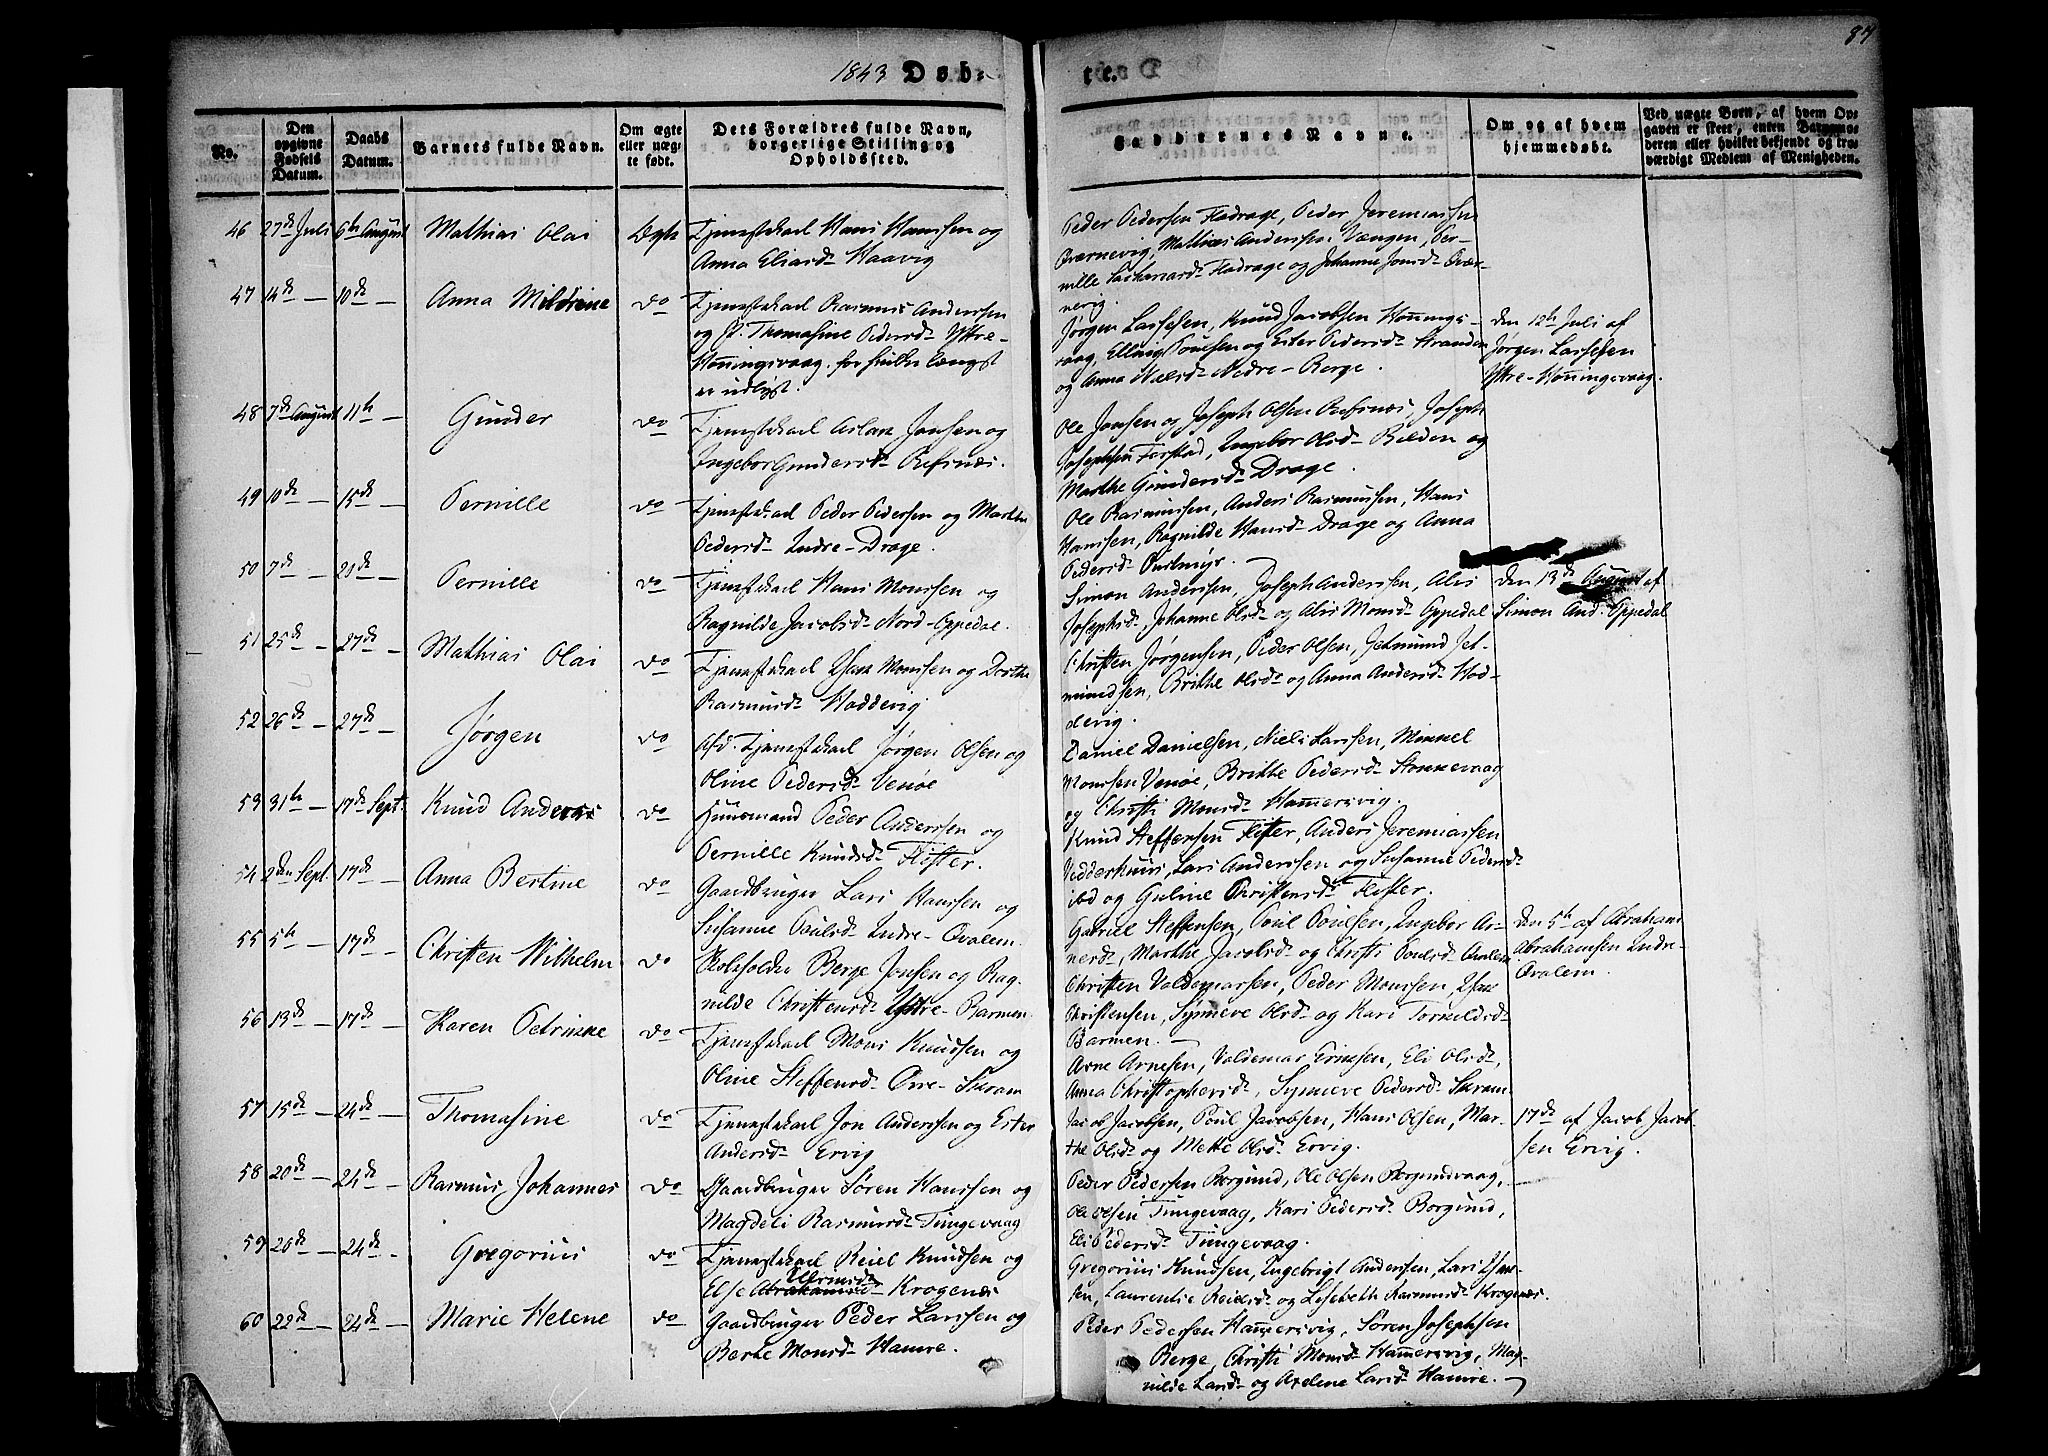 87
1843 Døbte.
No.
Den opgivne Fødsels Datum.
Daabs Datum.
Barnets fulde Navn.
Om ægte eller uægte født.
Dets Forældres fulde Navn, borgerlige Stilling og Opholdssted.
Faddernes Navne.
Om og af hvem hjemmedøbt.
Ved uægte Børn, af hvem Opgaven er skeet, enten Barnemoderen eller hvilket bekjendt og troværdigt Medlem af Menigheden.
46 27de Juli 6te August Mathias Olai Ægte Tjenestekarl Hans Hanssen og
Anna Eliasd. Haavig
Peder Pedersen Fladrage, Peder Jeremiassen
Qværnevig, Mathias Anderssen Vængen, Per-
nille Zachariasd. Fladrage og Johanne Jonsd. Qvær-
nevig.
47 14de — 10de — Anna Mildrine do Tjenestekarl Rasmus Anderssen
og P. Thomasine Pedersd. Yttre-
Honningsvaag. for hvilke længst
er udlyst.
Jørgen Lassesen, Knud Jacobsen Honnings-
vaag, Elling Poulsen og Ester Pedersd. Stranden
og Anna Nielsd. Nedre-Berge.
den 12te Juli af
Jørgen Lassesen
Yttre-Honningsvaag.
48 7de August 11te — Gunder do Tjenestekarl Aslak Jonsen og
Ingebor Gundersd. Refsnæs.
Ole Jonsen og Joseph Olsen Refsnæs, Joseph
Josephsen Forstad, Ingebor Olsd. Relden og
Marthe Gundersd. Drage.
49 10de — 15de — Pernille do Tjenestekarl Peder Pedersen og Marthe
Pedersd. Indre-Drage.
Ole Rasmussen, Anders Rasmussen, Hans
Hanssen, Ragnilde Hansd. Drage og Anna
Pedersd.
50 7de — 21de — Pernille do Tjenestekarl Hans Monssen og
Ragnilde Jacobsd. Nord-Oppedal.
Simon Anderssen, Joseph Anderssen, Alis
Josephsd., Johanne Olsd. og Alis Monsd. Oppedal
den 13de August af
Simon And. Oppedal
51 25de 27de — Mathias Olai do Tjenestekarl Isak Monssen og Dorthe
Rasmusd. Hoddevig
Christen Jørgensen, Peder Olsen, Jetmund Jet-
mundsen, Brithe Olsd. og Anna Andersd. Hod-
devig.
52 26de — 27de — Jørgen do Afd. Tjenestekarl Jørgen Olsen og
Oline Pedersd. Venøe
Daniel Danielsen, Niels Larssen, Monnel
Monssen Venøe, Brithe Pedersd. Stonnevaag
og Christi Monsd. Hammersvig.
53 31te — 17de Sept. Knud Andreas do Huusmand Peder Anderssen og
Pernille Knudsd. Flister.
Knud Steffensen Flister, Anders Jeremiassen
Vedderhuus, Lars Anderssen og Susanne Pedersd.
ibd og Guline Christensd. Flister.
54 2den Sept. 17de — Anna Bertine do Gaardbruger Lars Hanssen og
Susanne Poulsd. Indre-Qvalem.
Gabriel Steffensen, Poul Poulsen, Ingebor Ar-
nesd., Marthe Jacobsd. og Christi Poulsd. Qvalem
den 5te af Abraham
Abrahamsen Indre-
Qvalem.
55 5te — 17de — Christen Wilhelm do Berge Jonsen og Rag-
nilde Christensd. Yttre-Barmen.
Christen Valdemarsen, Peder Monssen, Isak
Christensen, Synneve Olsd. og Kari Tornildsd.
Barmen.
56 13de — 17de — Karen Petrikke do Tjenestekarl Mons Knudsen og
Oline Steffensd. Øvre-Skram
Arne Arnesen, Valdemar Erikssen, Eli Olsd.,
Anna Christophersd., Synneve Pedersd. Skram
57 15de — 24de — Thomasine do Tjenestekarl Jon Anderssen og Ester
Andersd. Ervig
Jacob Jacobsen, Poul Jacobsen, Hans Olsen, Mar-
the Olsd. og Mette Olsd. Ervig.
17de af Jacob Jacob-
sen Ervig.
58 20de — 24de — Rasmus Johannes do Gaardbruger Søren Hanssen og
Magdeli Rasmusd. Tungevaag
Peder Pedersen Borgund, Ole Olsen Borgundvaag,
Ole Olsen Tungevaag, Kari Pedersd. Borgund,
Eli Pedersd. Tungevaag.
59 20de — 24de — Gregorius do Tjenestekarl Reiel Knudsen og
Else Abrahamsd. Krogenæs
Gregorius Knudsen, Ingebrigt Anderssen, Lars Isak-
sen, Laurentse Reielsd. og Lisebeth Rasmusd. Krogenæs.
60 22de — 24de — Marie Helene do Gaardbruger Peder Larssen og
Berte Monsd. Hamre.
Peder Pedersen Hammersvig, Søren Josephsen
Berge, Christi Monsd. Hammersvig, Mag-
nilde Larsd. og Axeline Larsd. Hamre.